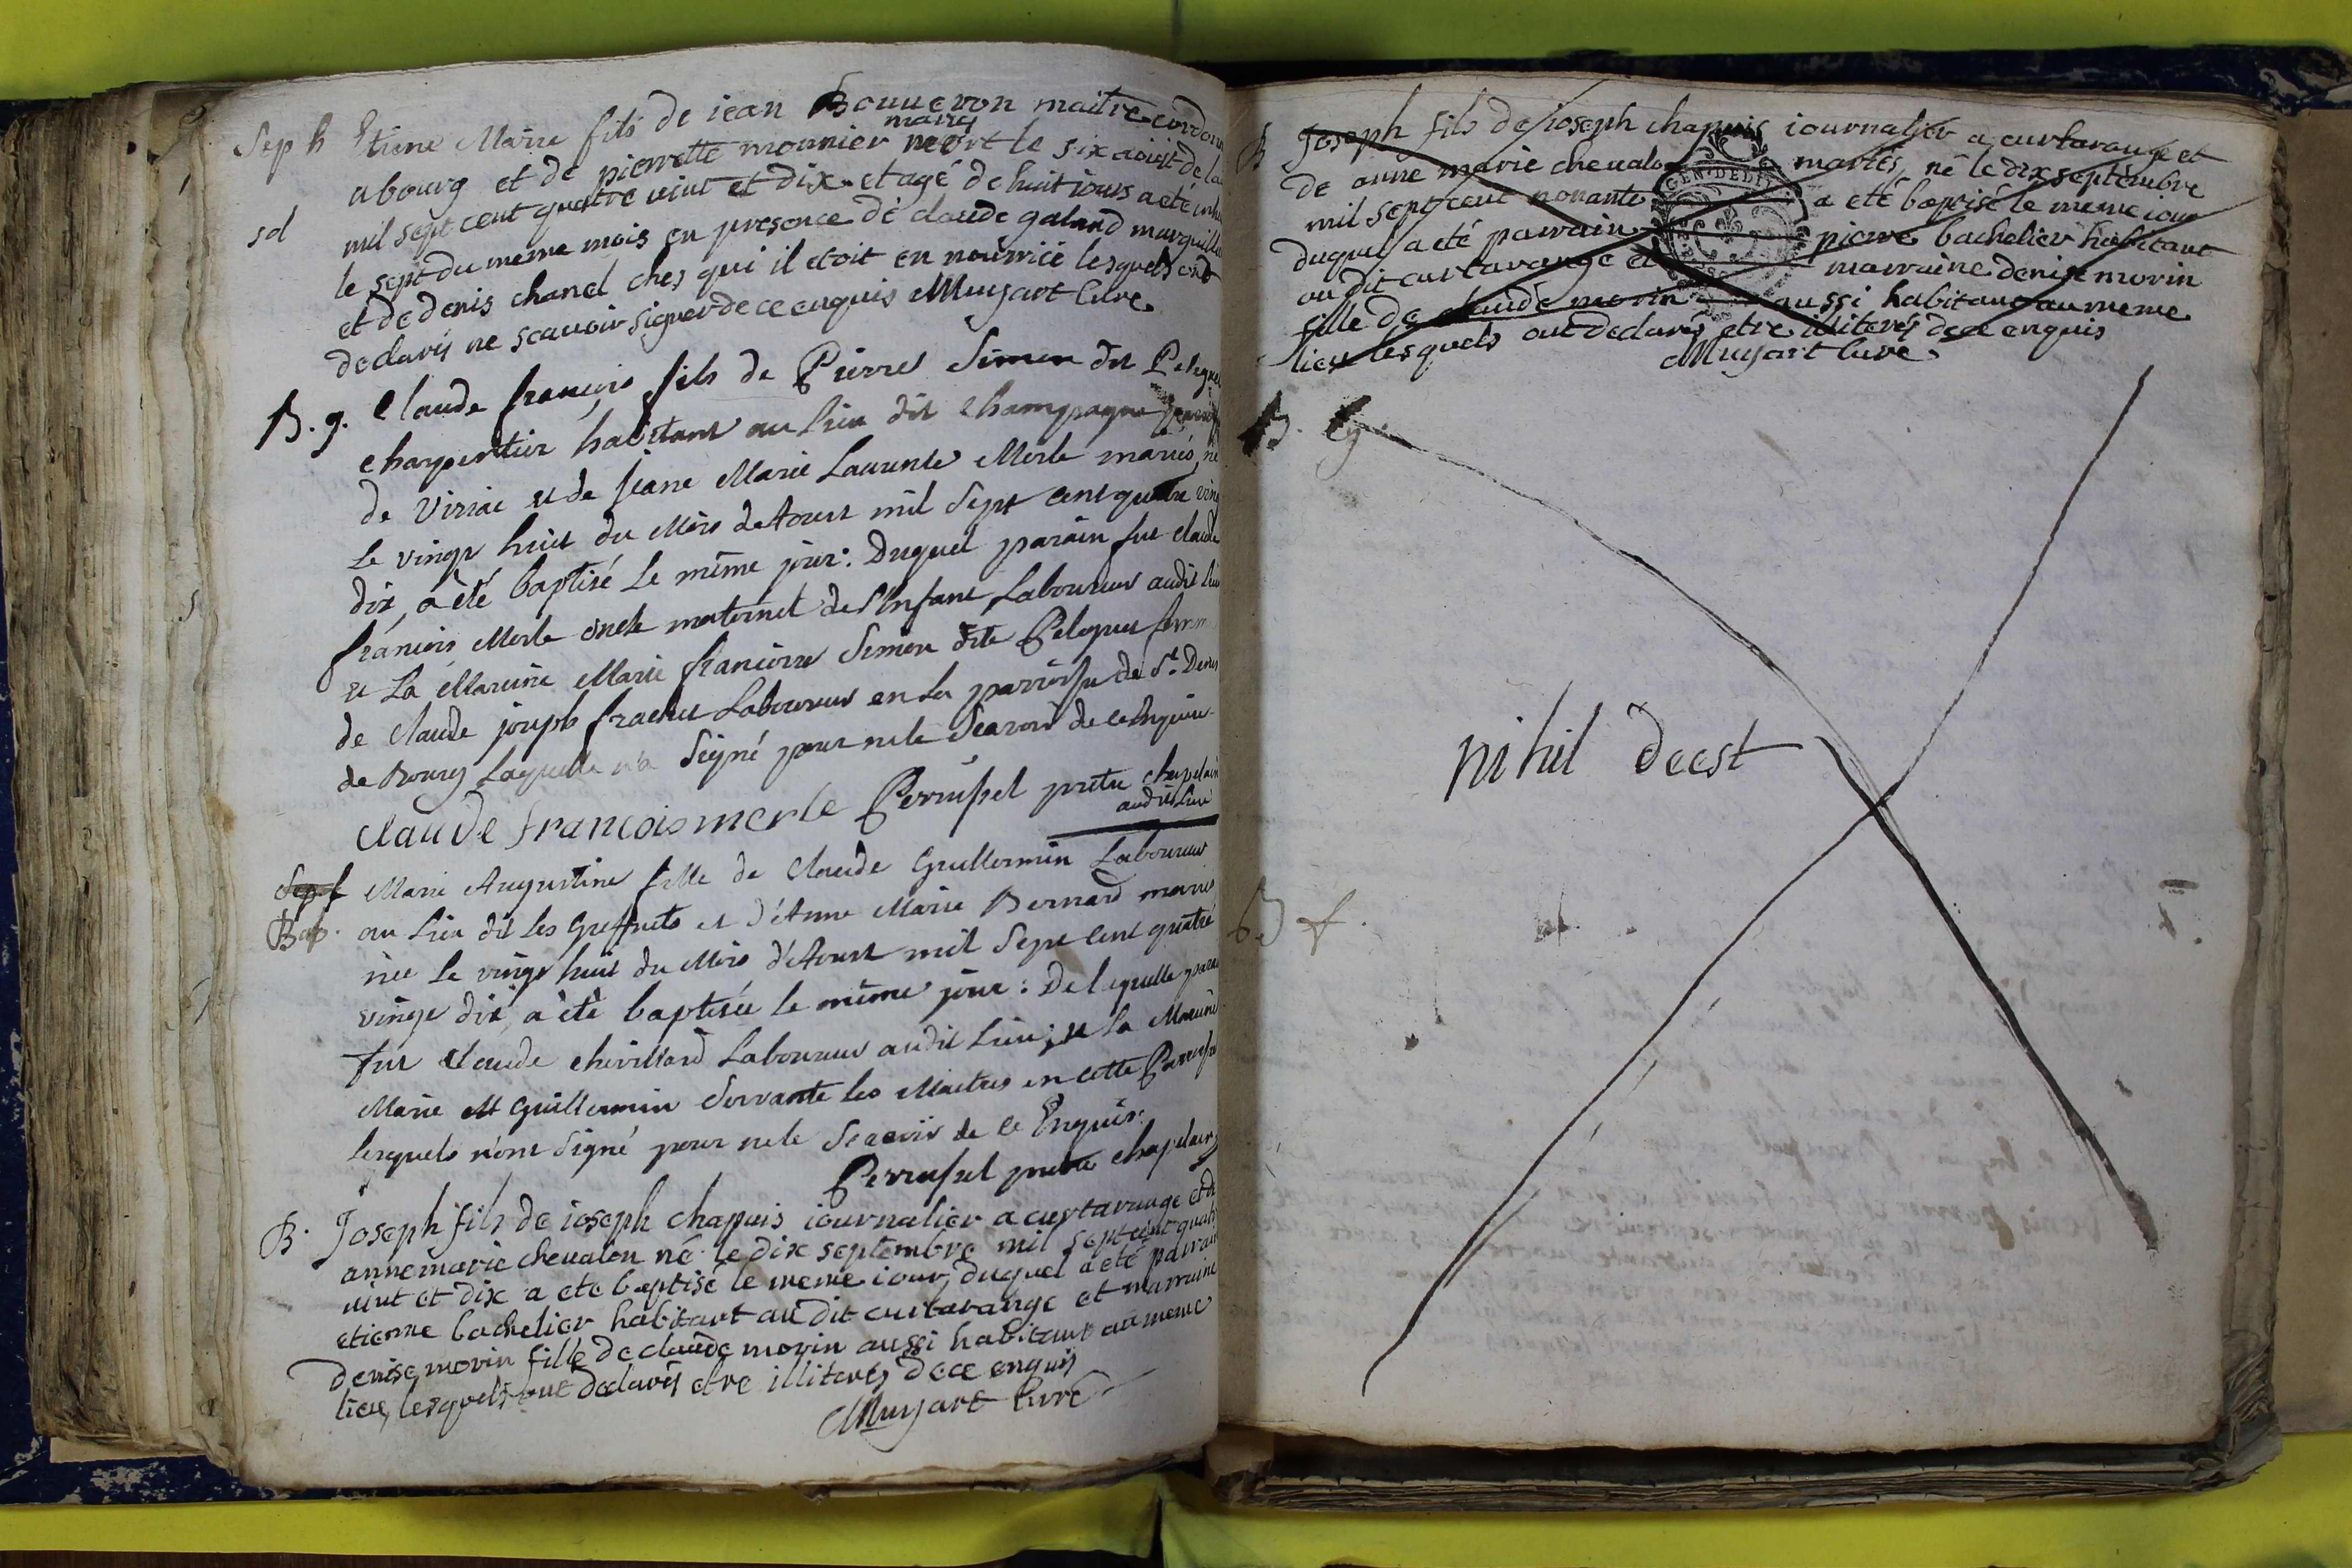 Sep h Etiene Marie fils de iean Bouueron maitre cordon
mariés
a bourg et de pierrette mounier mort le six aoust de la
mil sept cent quatre vint et dix et agé de huit iours a eté inhu
sd
le sept du meme mois en presence de claude galand marguillie
et de denis chanel ches qui il etoit en nourrice lesquels ont
declarés ne scauoir signer de ce enquis Muyart Curé
B. g. Claude françois fils de Pierre Simon dit Peleque
charpentier habitant au Lieu dit Champagne parroisse
de Viriac et de jeane Marie Laurente Merle mariés, né
Le vingt huit du Mois de Aoust mil Sept cent quatre ving
dix, a été baptisé Le même jour : Duquel parain fut claude
françois Merle oncle maternel de L'enfant, Laboureur audit Lieu
et La Maraine Marie françoise Simon dite Peleque femme
de Claude joseph frachet Laboureur en La parroisse de St. Denis
de Bourg Laquelle n'a Signé pour ne le Scavoir de ce Enquise
claude francois merle Perrussel pretre chapelain
audit Lieu
Sep f Marie Augustine fille de Claude Guillermin Laboureur
Bap. au Lieu dit Les Greffets et d'Anne Marie Bernard mariés
née Le vingt huit du Mois d'Aoust mil Sept Cent quatre
vingt dix, a été baptisée le même jour : De laquelle para
fut Claude Chevillard Laboureur audit Lieu ; et La Maraine
Marie Guillermin Servante Les Maitres en cette Parroisse
lesquels n'ont Signé pour ne le Scavoir de ce Enquis.
Perrussel pretre chapelain
B. Joseph fils de ioseph chapuis iournalier a curtarange et de
anne marie cheualon né le dix septembre mil sept cent quatre
uint et dix a eté baptisé le meme iour, duquel a eté parrain
etienne bachelier habitant au dit curtarange et marraine
denise morin fille de claude morin aussi habitant au meme
lieu, lesquels ont declarés etre illiterés de ce enquis
Muyart Curé
B Joseph fils de ioseph chapuis iournalier a curtarange et
de anne marie cheualon mariés, né le dix septembre
mil sept cent nonante a eté baptisé le meme iour
duquel a eté parrain pierre bachelier habitant
au dit curtarange et marraine denise morin
fille de claude morin aussi habitant au meme
lieu lesquels ont declarés etre illiterés de ce enquis
Muyart Curé.
GEN. DE DIJ
B. g
nihil deest
B f.